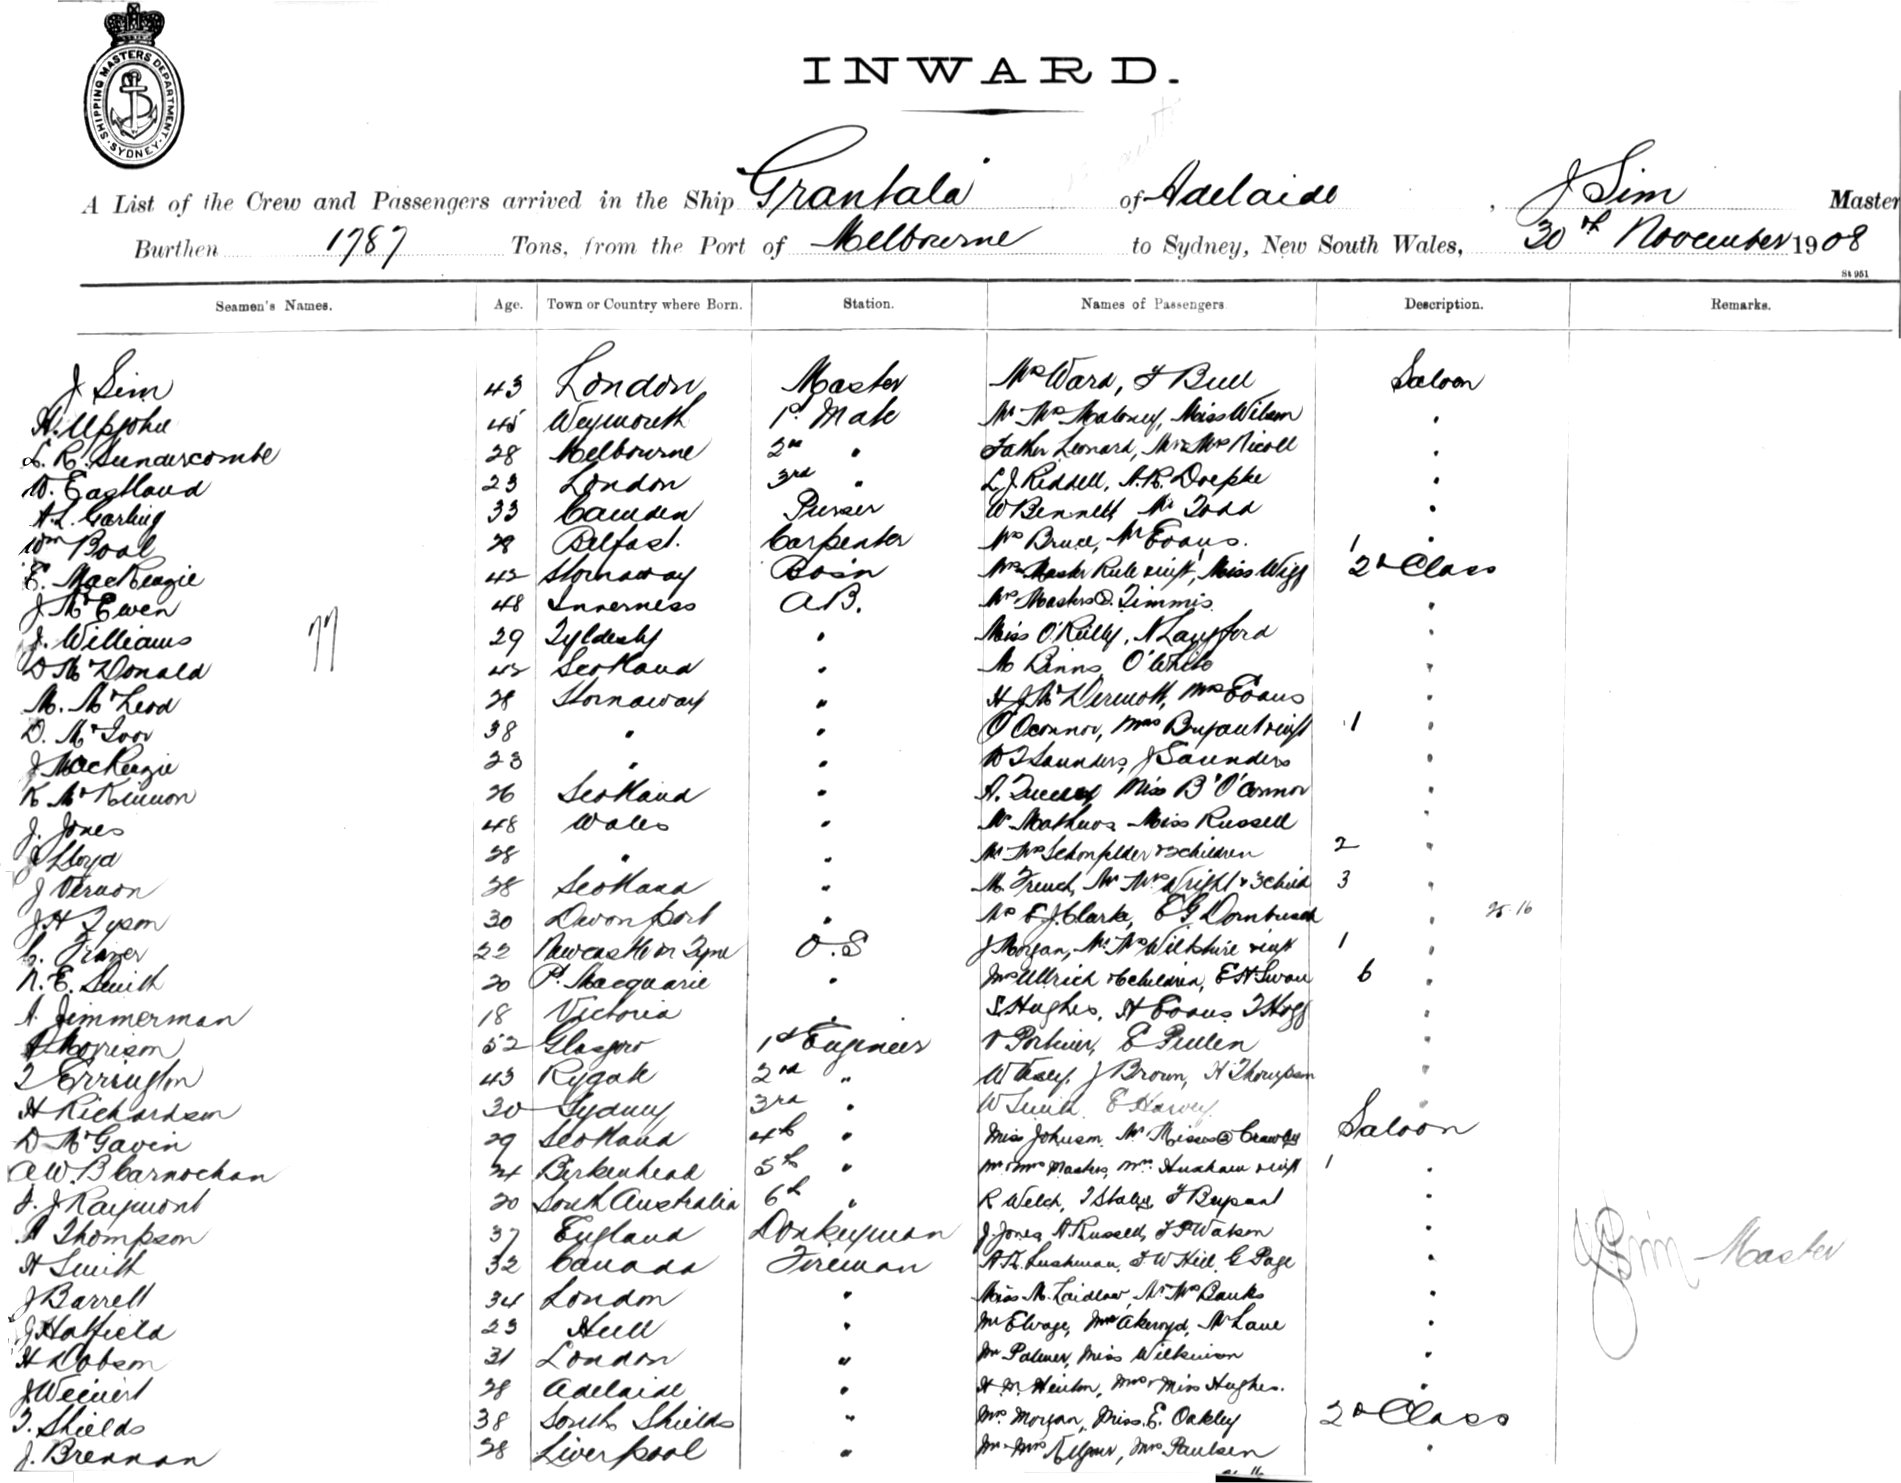 SHIPPING MASTERS DEPARTMENT
SYDNEY
INWARD.
A List of the Crew and Passengers arrived in the Ship Grantala of Adelaide, J Sim Master
Burthen 1787 Tons, from the Port of Melbourne to Sydney, New South Wales, 30th November 1908
St 951
Seamen's Names. Age. Town or Country where Born. Station. Names of Passengers Description. Remarks.
J Sim 43 London Master Mrs Ward, F Bull Saloon
H. Upjohn 45 Weymouth 1st Mate Mr Mrs Maloney, Miss Wilson "
L. R. Sundercombe 28 Melbourne 2nd " Father Leonard, Mr & Mrs Nicoll "
W. Eastland 23 London 3rd " L J Riddell, A.R. Doepke "
A.L. Garling 33 Camden Purser W Bennett Mr Todd "
Wm Boal 28 Belfast. Carpenter Mrs Bruce, Mr Evans. "
E. MacKenzie 42 Stornaway Bos'n Mrs Master Rule & inft, Miss Wigg 1 2d Class
J McEwen 48 Inverness A.B. Mrs Masters Timmis "
J. Williams 77 29 Tyldesly " Miss O'Reilly, N Langford "
D McDonald 42 Scotland " M Binns O'White "
M. McLeod 28 Stornaway " H J McDermott, Mrs Evans "
D. McIvor 38 " " O'Oconnor, Mrs Bryant & inft 1 "
J MacKenzie 23 " " W T Saunders, J Saunders "
K McKinnon 26 Scotland " A. Miss B'O'Connor "
J. Jones 48 Wales " Mr Mathews Miss Russell "
J Lloyd 28 " " Mr Mrs Schonfelder & 2 children 2 "
J Vernon 38 Scotland " M. French, Mr Mrs Wright & 3 child 3 "
J H Tyson 30 Devonport " Mrs E J Clark, E G Dornbusch " 25 16
C. Frazer 22 Newcastle on Tyne O.S J Morgan, Mr Mrs Wilkshire & inft 1 "
N. E. Smith 20 Pt Macquarie " Mrs Ullrich & 6 children, E H Swan 6 "
A. Zimmerman 18 Victoria " S Hughes, H Evans T Hogg "
Morrison 52 Glasgow 1st Engineer E Pullen "
T Errington 43 Rygate 2nd " W J Brown, H Thompson "
H Richardson 30 Sydney 3rd " W Smith E Harvey "
D McGavin 29 Scotland 4th " Miss Johnson Mr Misses Crawley Saloon
A.W. B Carnochan 24 Birkenhead 5th " Mr & Mrs Masters, Mrs Husham & inft 1 "
F. J Raymont 20 South Australia 6th " R Welch, T Staley, F Bryant "
A Thompson 37 England Donkeyman J Jones, A. Russell, F P Watson "
H Smith 32 Canada Fireman A. L. Lushman, F W Hill, G Page "
J Sim Master
J Barrett 34 London " Miss M. Laidlaw, Mr Mrs Banks "
J Hatfield 23 Hull " Mr Elvage, Mrs Akeroyd, Mr Lane "
H Dobson 31 London " Mr Palmer, Miss Wilkinson "
J Weinert 28 Adelaide " H M Heinton, Mrs & Miss Hughes. "
T. Shields 38 South Shields " Mrs. Morgan, Miss. E. Oakley 2d Class
J. Brennan 28 Liverpool " Mr Mrs Kilgour, Mrs Paulsen "